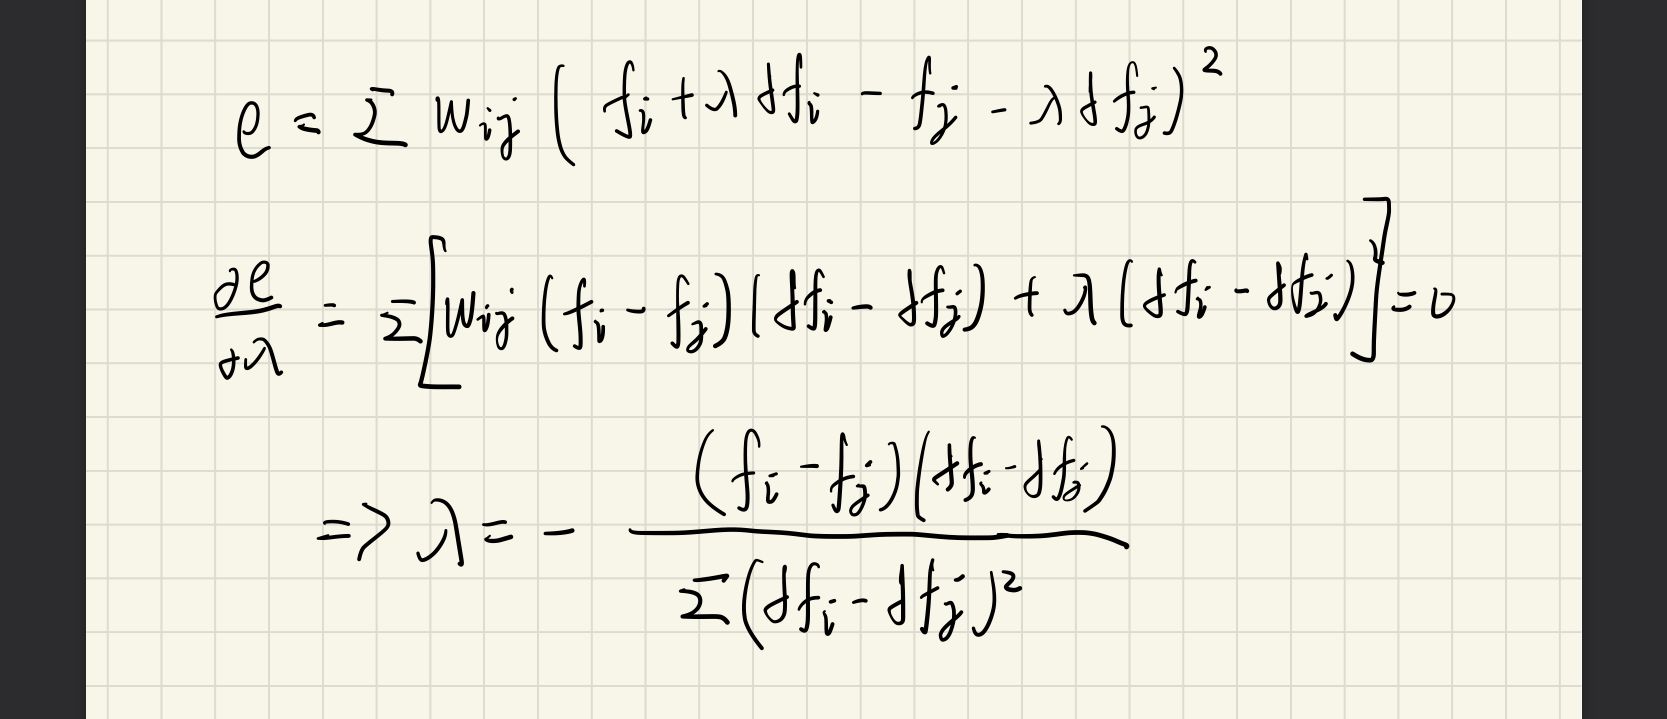 e = Σ w_ij ( f_i + λ df_i − f_j − λ df_j )²
∂e/∂λ = Σ [ w_ij (f_i − f_j)(df_i − df_j) + λ (df_i − df_j)² ] = 0
=> λ = − (f_i − f_j)(df_i − df_j) / Σ (df_i − df_j)²